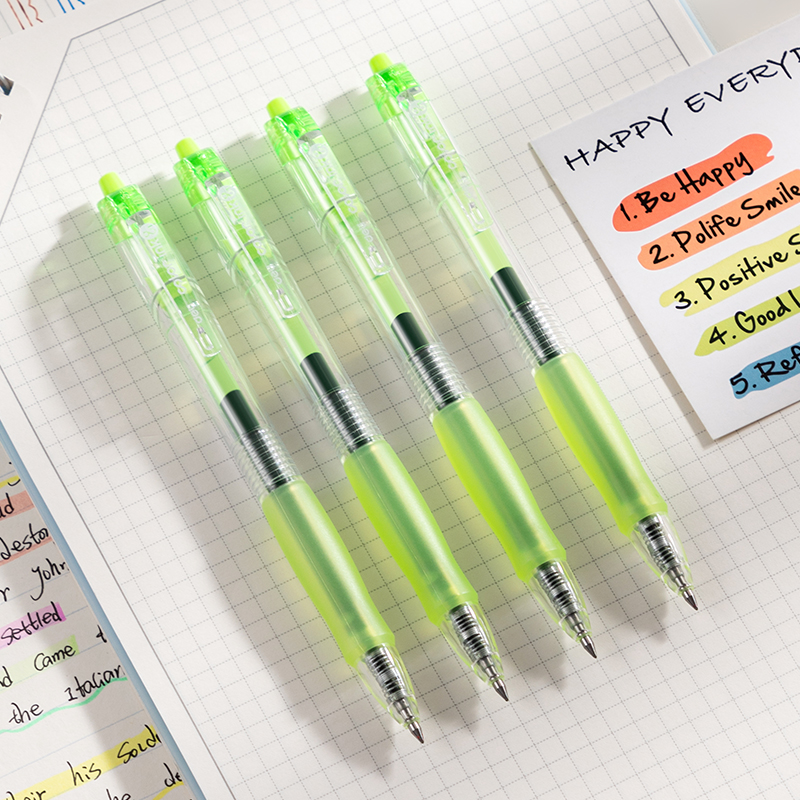 HAPPY EVERYD
1. Be Happy
2. Polife Smile
3. Positive S
4. Good
5. Ref
destor
John
settled
came
the Italian
his
the